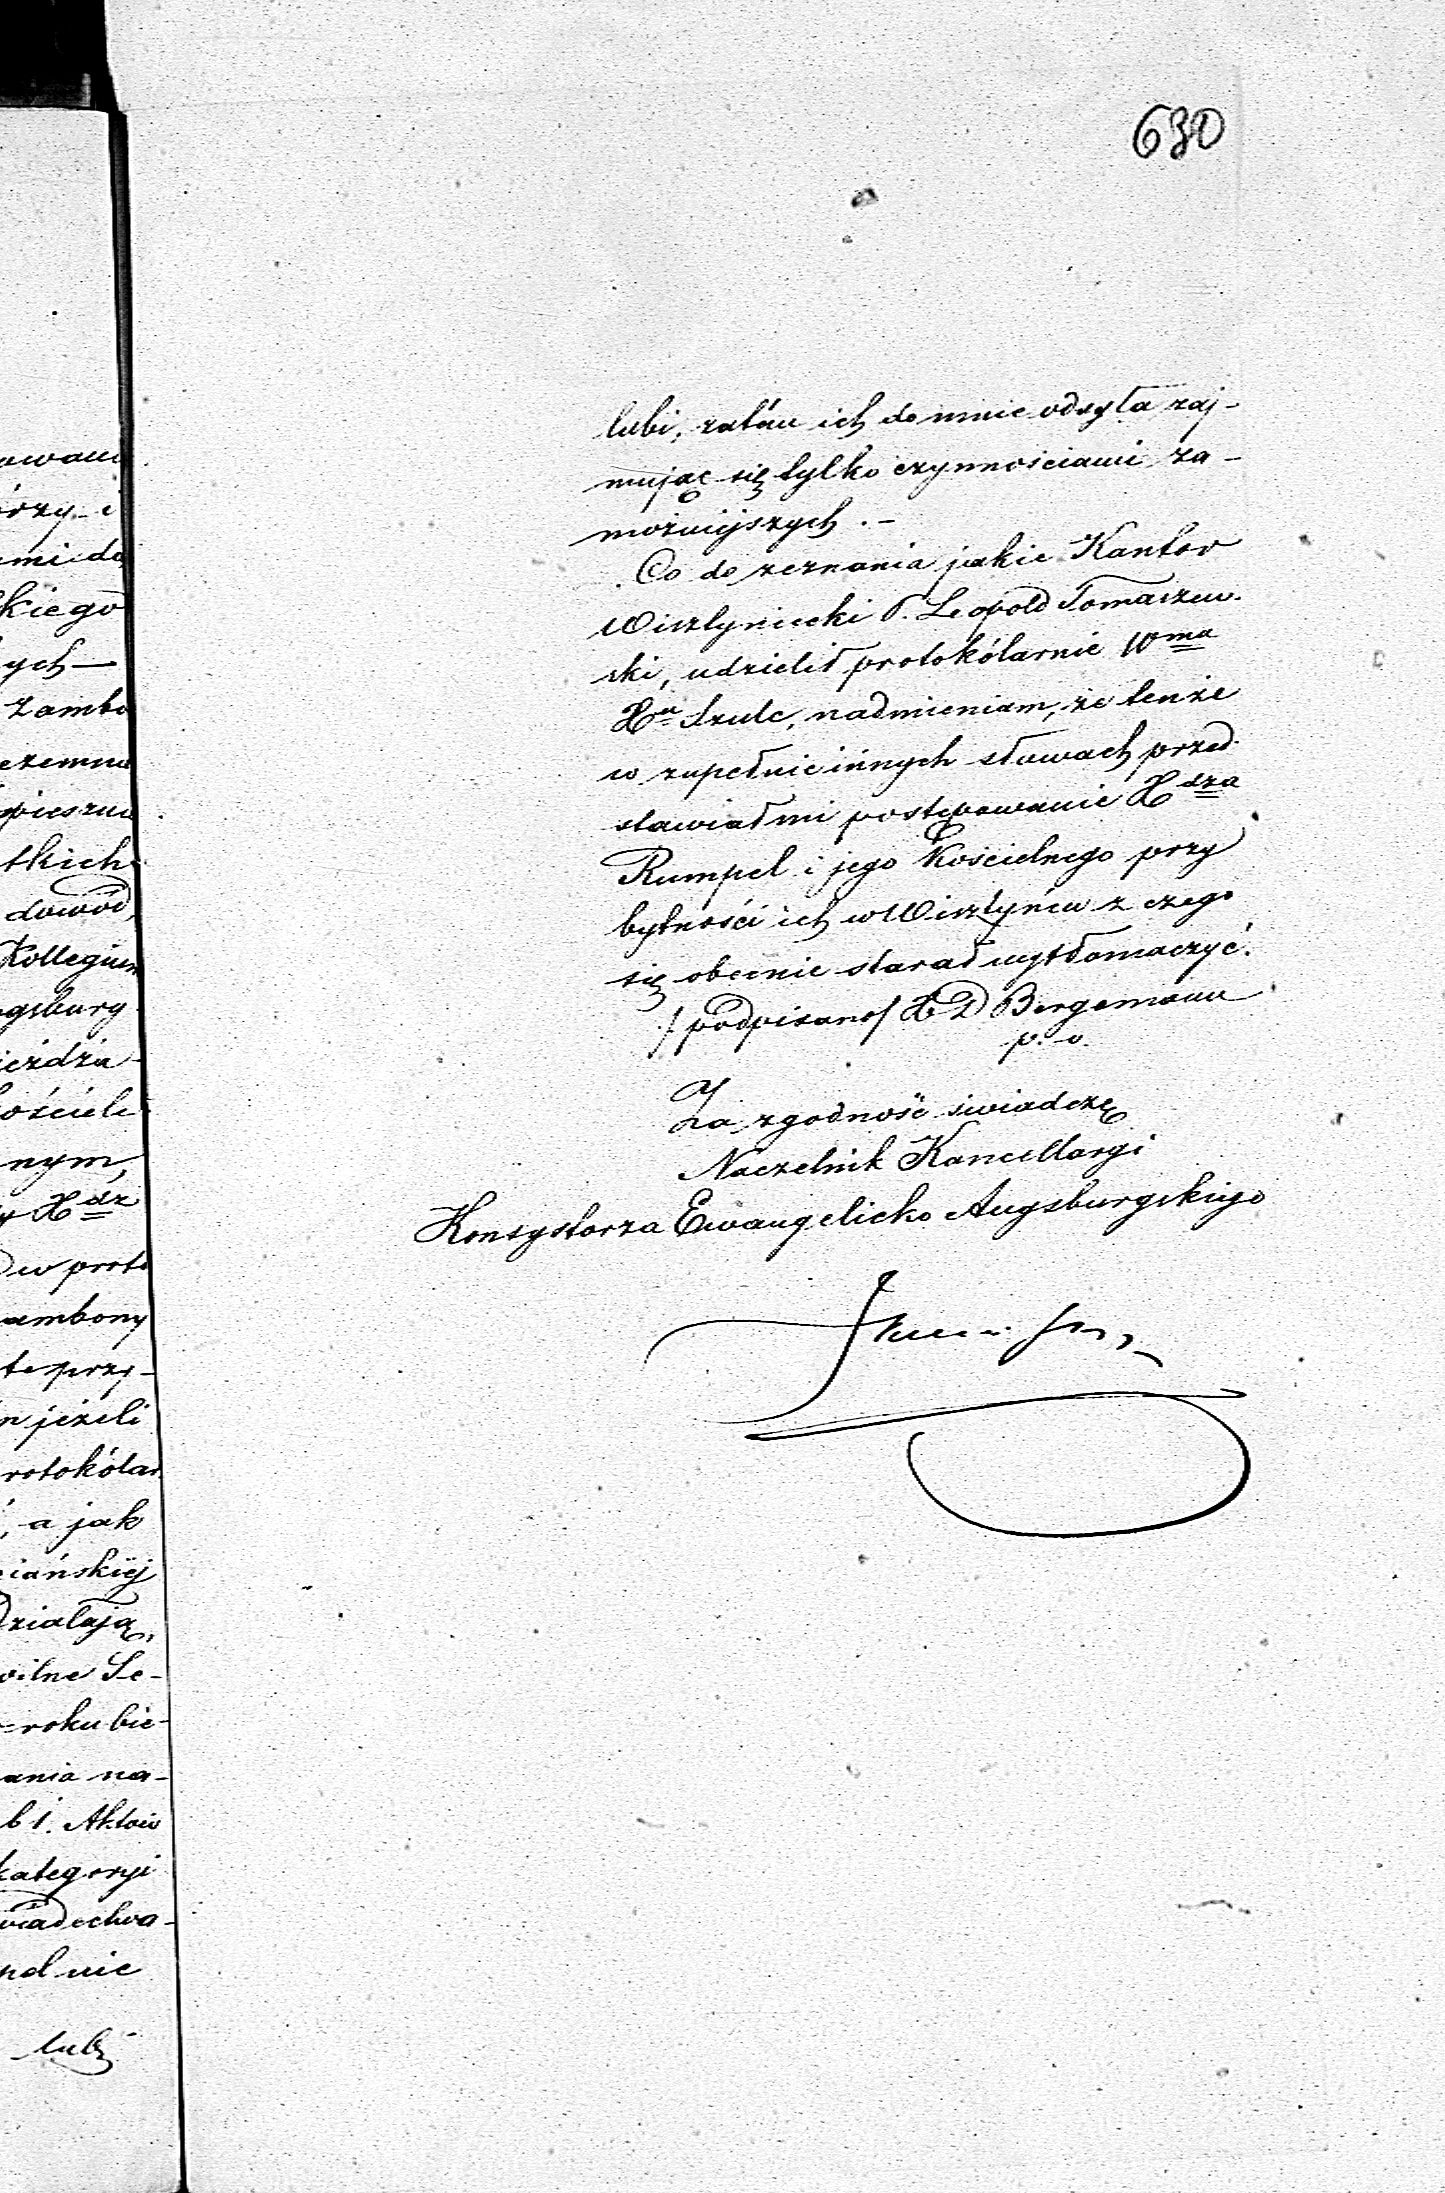 630
lubi, zatém ich do mnie odsyła zaj-
mując się tylko czynnościami za-
możniejszych. -
Co do zeznania jakie Kantor
Wisztyniecki P. Leopold Tomaszew-
ski, udzielił protokólarnie Wmu
Xu Szulc, nadmieniam, że tenże
w zupełnie innych słowach przed-
stawiał mi postępowanie Xdza
Rumpel i jego Kościelnego przy
bytności ich w Wisztyńcu z czego
się obecnie starał wytłomaczyć.
/podpisano/ X D Bergemann
p. o.
Za zgodność świadczę
Naczelnik Kancellaryi
Konsystorza Ewangelicko Augsburgskiego
órzy i
mi do
kiego
ych —
Zambo
tkich
dowód,
Kollegium
gsburg
ieżdża-
ościele
nym,
Xdz
w proto
ambony
te przy-
n jeżeli
rotokólar
, a jak
ciańskiéj
działają,
wilne Se-
roku bie-
ania na-
b i. Aktów
kategoryi
pel nie
lubi